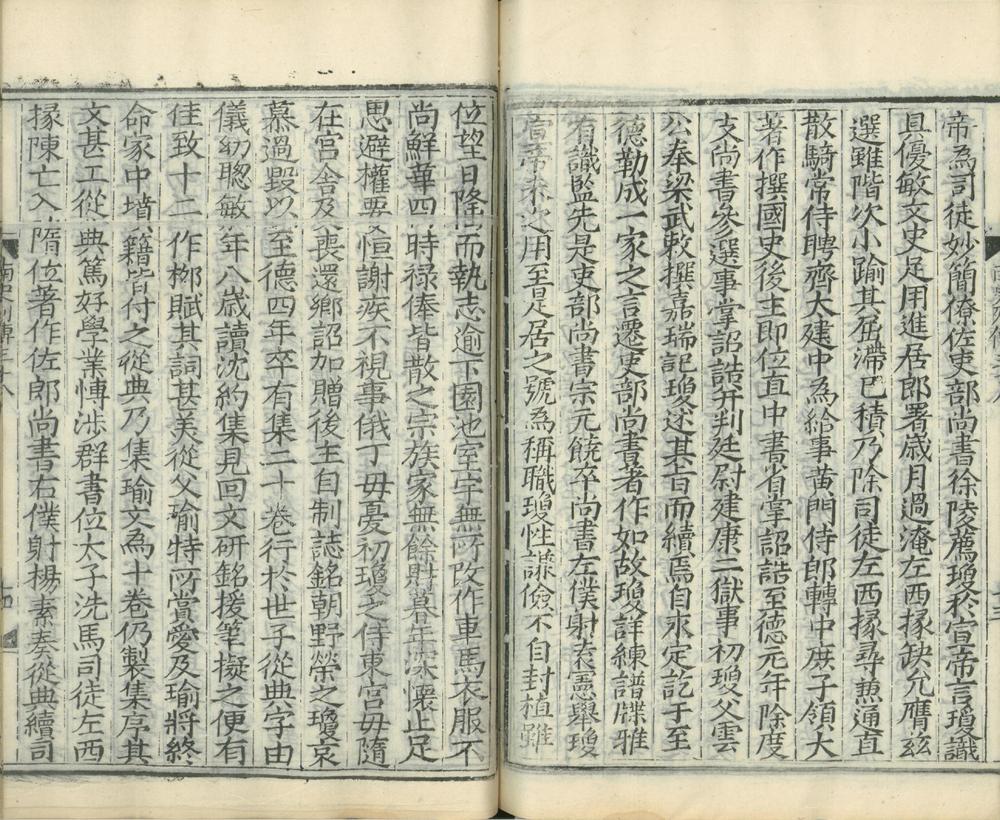 帝為司徒妙簡僚佐吏部尚書徐陵薦瓊於宣帝言瓊識
具優敏文史足用進居郎署歲月過淹左西掾缺允膺茲
選雖階次小踰其屈滯已積乃除司徒左西掾尋兼通直
散騎常侍聘齊太建中為給事黄門侍郎轉中庶子領大
著作撰國史後主即位直中書省掌詔誥至德元年除度
支尚書參選事掌詔誥并判廷尉建康二獄事初瓊父雲
公奉梁武敕撰嘉瑞記瓊述其旨而續焉自永定訖于至
德勒成一家之言遷吏部尚書著作如故瓊詳練譜牒雅
有識監先是吏部尚書宗元饒卒尚書左僕射袁憲舉瓊
宣帝未之用至是居之號為稱職瓊性謙儉不自封植雖
位望日隆而執志逾下園池室宇無所改作車馬衣服不
尚鮮華四時禄俸皆散之宗族家無餘財暮年深懷止足
思避權要恒謝疾不視事俄丁母憂初瓊之侍東宫母隨
在宫舍及喪還鄉詔加贈後主自制誌銘朝野榮之瓊哀
慕過毀以至德四年卒有集二十卷行於世子從典字由
儀幼聰敏年八歲讀沈約集見回文研銘援筆擬之便有
佳致十二作栁賦其詞甚美從父瑜特所賞愛及瑜將終
命家中墳籍皆付之從典乃集瑜文為十卷仍製集序其
文甚工從典篤好學業愽涉群書位太子洗馬司徒左西
掾陳亡入隋位著作佐郎尚書右僕射楊素奏從典續司